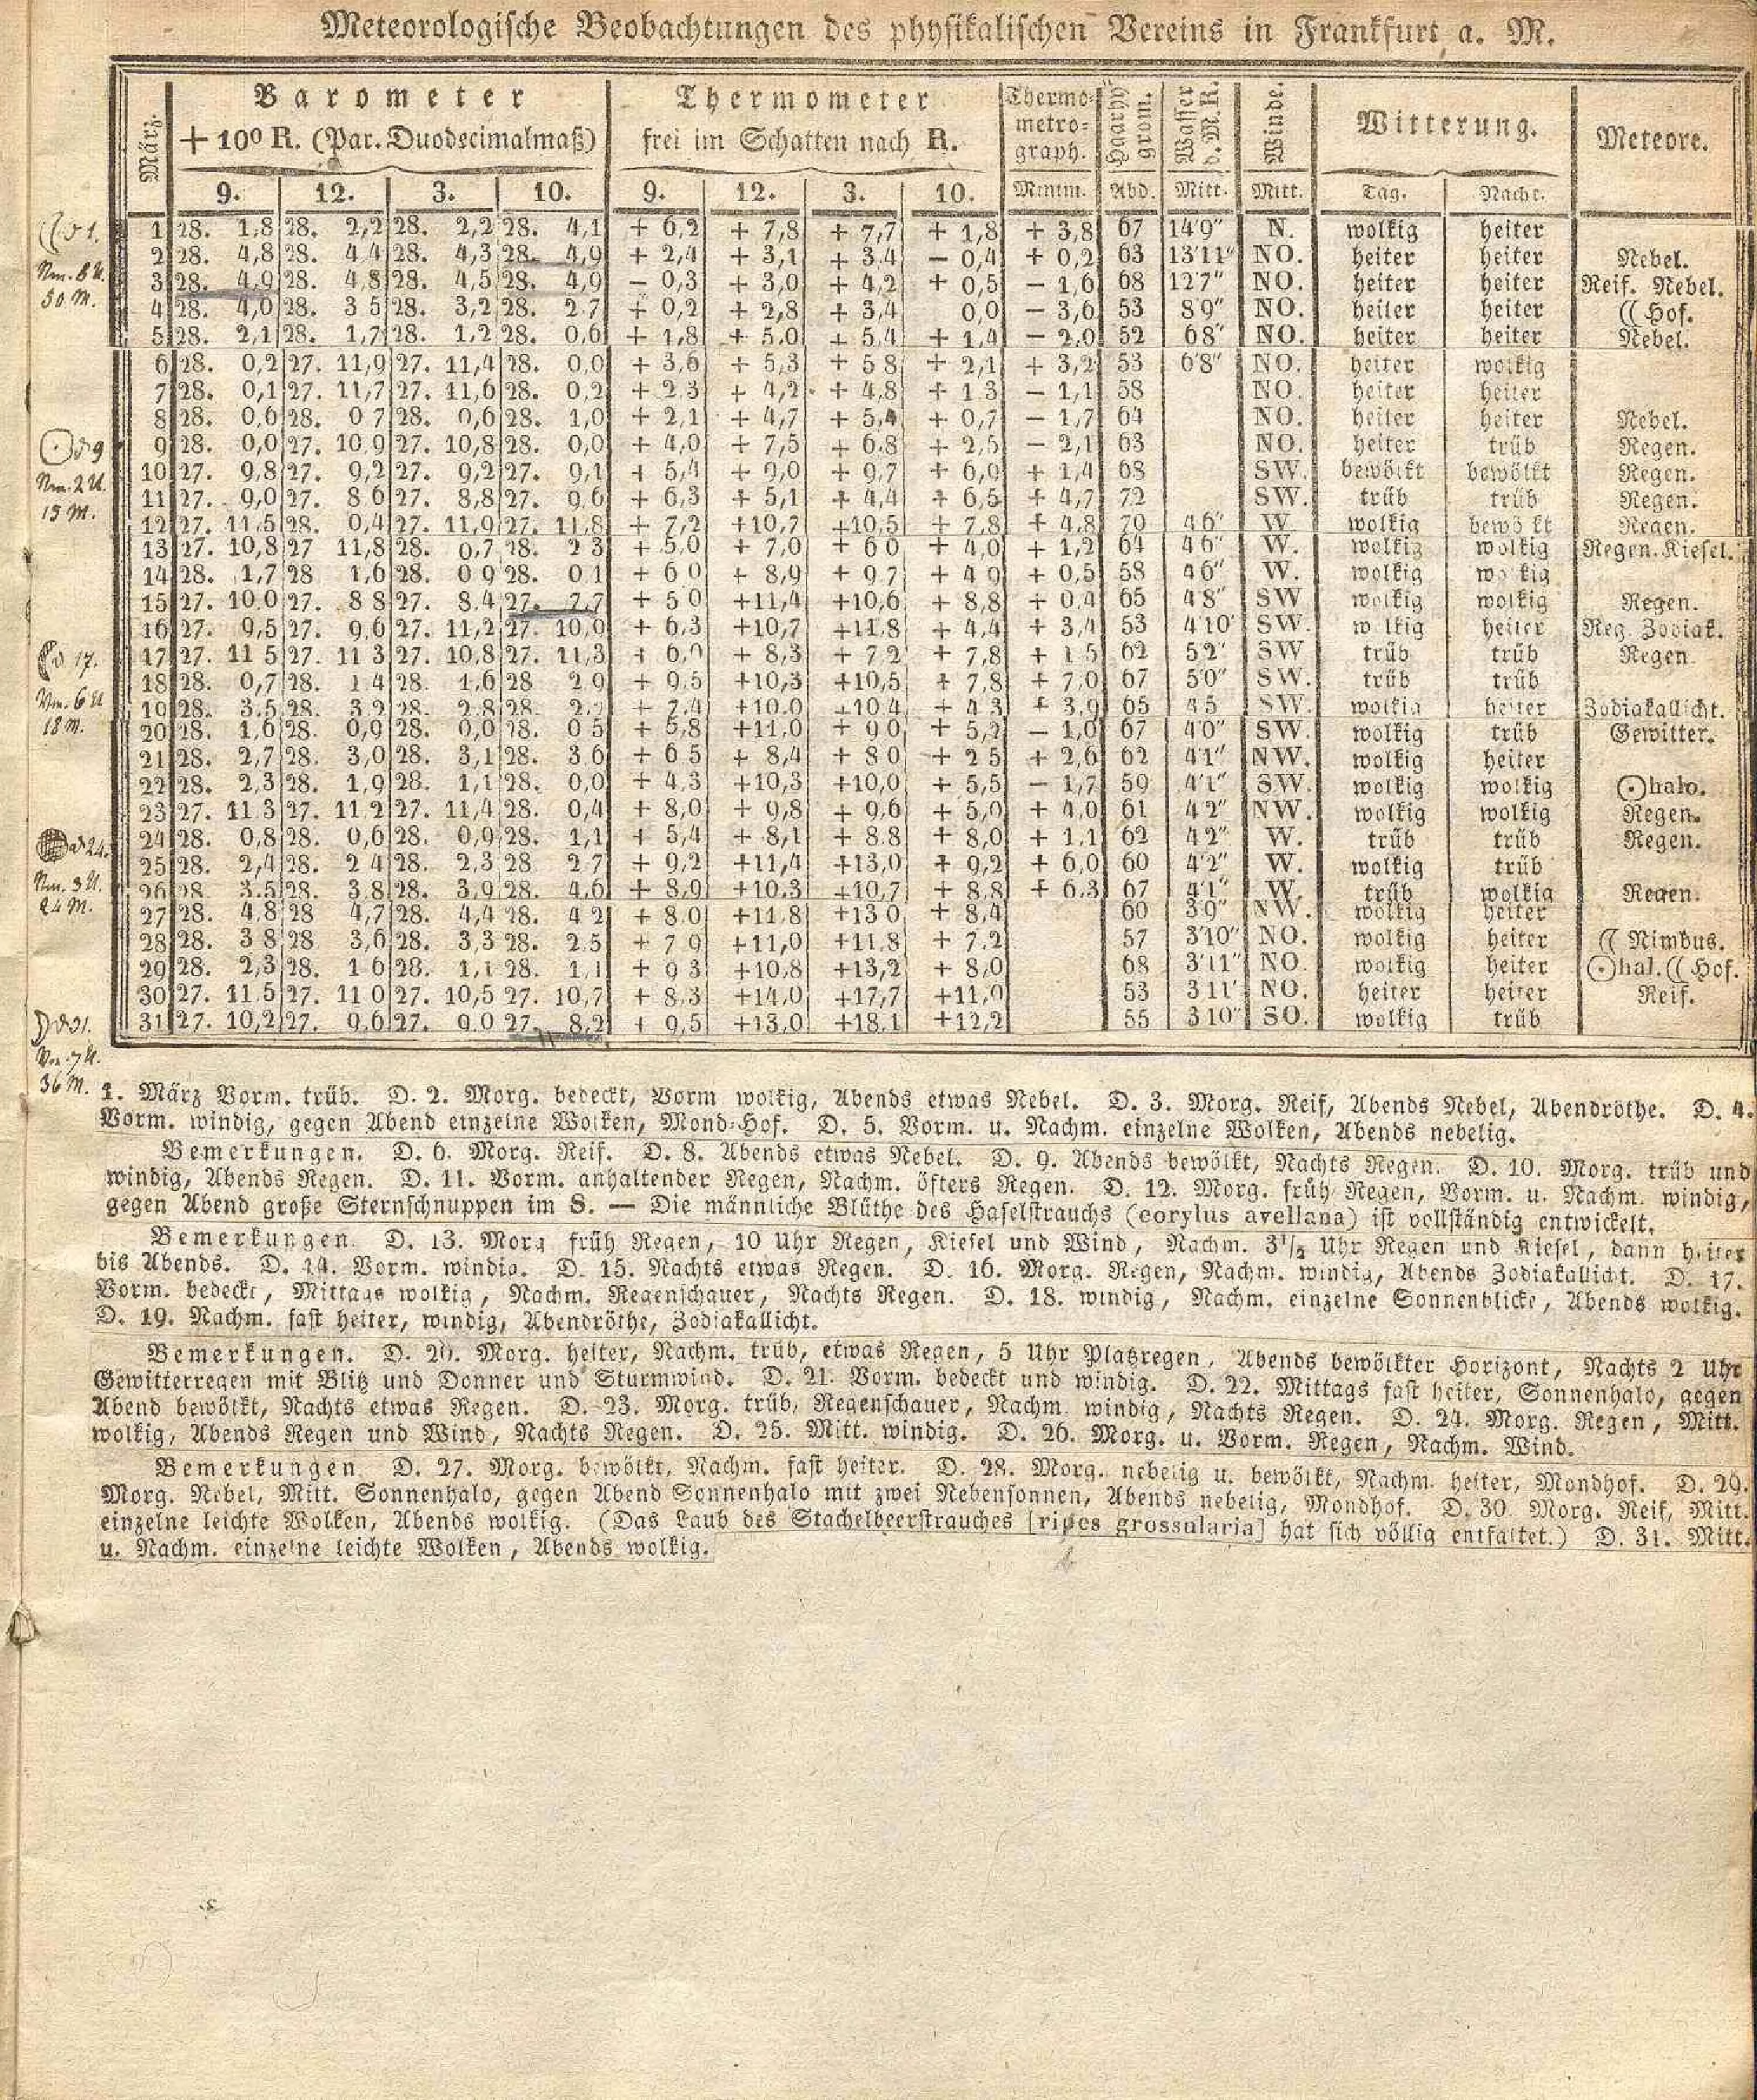 Meteorologische Beobachtungen des physikalischen Vereins in Frankfurt a. M.
März. Barometer Thermometer Thermo- Haarhygrom. Wasser d. M. R. Winde. Witterung. Meteore.
+ 10⁰ R. (Par. Duodecimalmaß) frei im Schatten nach R. metro-
graph.
9. 12. 3. 10. 9. 12. 3. 10. Minim. Abd. Mitt. Mitt. Tag. Nacht.
1 28. 1,8 28. 2,2 28. 2,2 28. 4,1 + 6,2 + 7,8 + 7,7 + 1,8 + 3,8 67 14'9" N. wolkig heiter
2 28. 4,8 28. 4 4 28. 4,3 28. 4,9 + 2,4 + 3,1 + 3,4 − 0,4 + 0,2 63 13'11" NO. heiter heiter Nebel.
3 28. 4,9 28. 4,8 28. 4,5 28. 4,9 − 0,3 + 3,0 + 4,2 + 0,5 − 1,6 68 12'7" NO. heiter heiter Reif. Nebel.
4 28. 4,0 28. 3 5 28. 3,2 28. 2 7 + 0,2 + 2,8 + 3,4 0,0 − 3,6 53 8'9" NO. heiter heiter ☾ Hof.
5 28. 2,1 28. 1,7 28. 1,2 28. 0,6 + 1,8 + 5,0 + 5,4 + 1,4 − 2,0 52 6'8" NO. heiter heiter Nebel.
6 28. 0,2 27. 11,9 27. 11,4 28. 0,0 + 3,6 + 5,3 + 5 8 + 2,1 + 3,2 53 6'8" NO. heiter wolkig
7 28. 0,1 27. 11,7 27. 11,6 28. 0,2 + 2 3 + 4,2 + 4,8 + 1 3 − 1,1 58 NO. heiter heiter
8 28. 0,6 28. 0 7 28. 0,6 28. 1,0 + 2,1 + 4,7 + 5,4 + 0,7 − 1,7 64 NO. heiter heiter Nebel.
9 28. 0,0 27. 10 9 27. 10,8 28. 0,0 + 4,0 + 7,5 + 6,8 + 2,5 − 2,1 63 NO. heiter trüb Regen.
10 27. 9,8 27. 9,2 27. 9,2 27. 9,1 + 5,4 + 9,0 + 9,7 + 6,0 + 1,4 68 SW. bewölkt bewölkt Regen.
11 27. 9,0 27. 8 6 27. 8,8 27. 9 6 + 6,3 + 5,1 + 4,4 + 6,5 + 4,7 72 SW. trüb trüb Regen.
12 27. 11,5 28. 0,4 27. 11,9 27. 11,8 + 7,2 +10,7 +10,5 + 7,8 + 4,8 70 4'6" W. wolkig bewö kt Regen.
13 27. 10,8 27 11,8 28. 0,7 28. 2 3 + 5,0 + 7,0 + 6 0 + 4,0 + 1,2 64 4'6" W. wolkig wolkig Regen. Kiesel.
14 28. 1,7 28 1,6 28. 0 9 28. 0 1 + 6 0 + 8,9 + 9 7 + 4 9 + 0,5 58 4'6" W. wolkig wo kig
15 27. 10,0 27. 8 8 27. 8,4 27. 7,7 + 5 0 +11,4 +10,6 + 8,8 + 0,4 65 4'8" SW wolkig wolkig Regen.
16 27. 9,5 27. 9,6 27. 11,2 27. 10,9 + 6,3 +10,7 +11,8 + 4,4 + 3,4 53 4'10" SW. w lkig heiter Reg. Zodiak.
17 27. 11 5 27. 11 3 27. 10,8 27. 11,3 + 6,0 + 8,3 + 7 2 + 7,8 + 1 5 62 5'2" SW trüb trüb Regen.
18 28. 0,7 28. 1 4 28. 1,6 28 2 9 + 9,5 +10,3 +10,5 + 7,8 + 7,0 67 5'0" SW. trüb trüb
19 28. 3,5 28. 3 2 28. 2,8 28. + 7,4 +10,0 +10 4 + 4,3 + 3,9 65 4'5 SW. wolkig heiter Zodiakallicht.
20 28. 1,6 28. 0,9 28. 0,0 28. 0 5 + 5,8 +11,0 + 9 0 + 5,2 − 1,0 67 4'0" SW. wolkig trüb Gewitter.
21 28. 2,7 28. 3,0 28. 3,1 28. 3 6 + 6 5 + 8,4 + 8 0 + 2 5 + 2,6 62 4'1" NW. wolkig heiter
22 28. 2,3 28. 1,9 28. 1,1 28. 0,0 + 4,3 +10,3 +10,0 + 5,5 − 1,7 59 4'1" SW. wolkig wolkig ☉halo.
23 27. 11 3 27. 11,2 27. 11,4 28. 0,4 + 8,0 + 9,8 + 9,6 + 5,0 + 4,0 61 4'2" NW. wolkig wolkig Regen.
24 28. 0,8 28. 0,6 28. 0,9 28. 1,1 + 5,4 + 8,1 + 8.8 + 8,0 + 1,1 62 4'2" W. trüb trüb Regen.
25 28. 2,4 28. 2 4 28. 2,3 28 2 7 + 9,2 +11,4 +13,0 + 9,2 + 6,0 60 4'2" W. wolkig trüb
26 28 3.5 28. 3,8 28. 3,9 28. 4,6 + 8,9 +10,3 +10,7 + 8,8 + 6,3 67 4'1" W. trüb wolkig Regen.
27 28. 4,8 28 4,7 28. 4,4 28. 4 2 + 8,0 +11,8 +13 0 + 8,4 60 3'9" NW. wolkig heiter
28 28. 3 8 28 3,6 28. 3,3 28. 2.5 + 7 9 +11,0 +11,8 + 7,2 57 3'10" NO. wolkig heiter ☾ Nimbus.
29 28. 2,3 28. 1 6 28. 1,1 28. 1,1 + 9 3 +10,8 +13,2 + 8,0 68 3'11" NO. wolkig heiter ☉hal. ☾ Hof.
30 27. 11,5 27. 11 0 27. 10,5 27. 10,7 + 8,3 +14,0 +17,7 +11,0 53 3'11" NO. heiter heiter Reif.
31 27. 10,2 27. 9,6 27. 9,0 27. 8,2 + 9,5 +13,0 +18,1 +12,2 55 3'10" SO. wolkig trüb
☾ d 1.
Nm. 8 U.
30 M.
☉ d 9
Nm. 2 U.
15 M.
☾ d 17.
Vm. 6 U
18 M.
d 24.
Nm. 3 U.
24 M.
☽ d 31.
Vm. 7 U.
36 M.
1. März Vorm. trüb. D. 2. Morg. bedeckt, Vorm wolkig, Abends etwas Nebel. D. 3. Morg. Reif, Abends Nebel, Abendröthe. D. 4.
Vorm. windig, gegen Abend einzelne Wolken, Mond-Hof. D. 5. Vorm. u. Nachm. einzelne Wolken, Abends nebelig.
Bemerkungen. D. 6. Morg. Reif. D. 8. Abends etwas Nebel. D. 9. Abends bewölkt, Nachts Regen. D. 10. Morg. trüb und
windig, Abends Regen. D. 11. Vorm. anhaltender Regen, Nachm. öfters Regen. D. 12. Morg. früh Regen, Vorm. u. Nachm. windig,
gegen Abend große Sternschnuppen im S. — Die männliche Blüthe des Haselstrauchs (corylus avellana) ist vollständig entwickelt.
Bemerkungen. D. 13. Morg früh Regen, 10 Uhr Regen, Kiesel und Wind, Nachm. 3½ Uhr Regen und Kiesel, dann heiter
bis Abends. D. 14. Vorm. windig. D. 15. Nachts etwas Regen. D. 16. Morg. Regen, Nachm. windig, Abends Zodiakallicht. D. 17.
Vorm. bedeckt, Mittags wolkig, Nachm. Regenschauer, Nachts Regen. D. 18. windig, Nachm. einzelne Sonnenblicke, Abends wolkig.
D. 19. Nachm. fast heiter, windig, Abendröthe, Zodiakallicht.
Bemerkungen. D. 20. Morg. heiter, Nachm. trüb, etwas Regen, 5 Uhr Platzregen, Abends bewölkter Horizont, Nachts 2 Uhr
Gewitterregen mit Blitz und Donner und Sturmwind. D. 21. Vorm. bedeckt und windig. D. 22. Mittags fast heiter, Sonnenhalo, gegen
Abend bewölkt, Nachts etwas Regen. D. 23. Morg. trüb, Regenschauer, Nachm. windig, Nachts Regen. D. 24. Morg. Regen, Mitt.
wolkig, Abends Regen und Wind, Nachts Regen. D. 25. Mitt. windig. D. 26. Morg. u. Vorm. Regen, Nachm. Wind.
Bemerkungen. D. 27. Morg. bewölkt, Nachm. fast heiter. D. 28. Morg. nebelig u. bewölkt, Nachm. heiter, Mondhof. D. 29.
Morg. Nebel, Mitt. Sonnenhalo, gegen Abend Sonnenhalo mit zwei Nebensonnen, Abends nebelig, Mondhof. D. 30. Morg. Reif, Mitt.
einzelne leichte Wolken, Abends wolkig. (Das Laub des Stachelbeerstrauches [ripes grossularia] hat sich völlig entfaltet.) D. 31. Mitt.
u. Nachm. einzelne leichte Wolken, Abends wolkig.